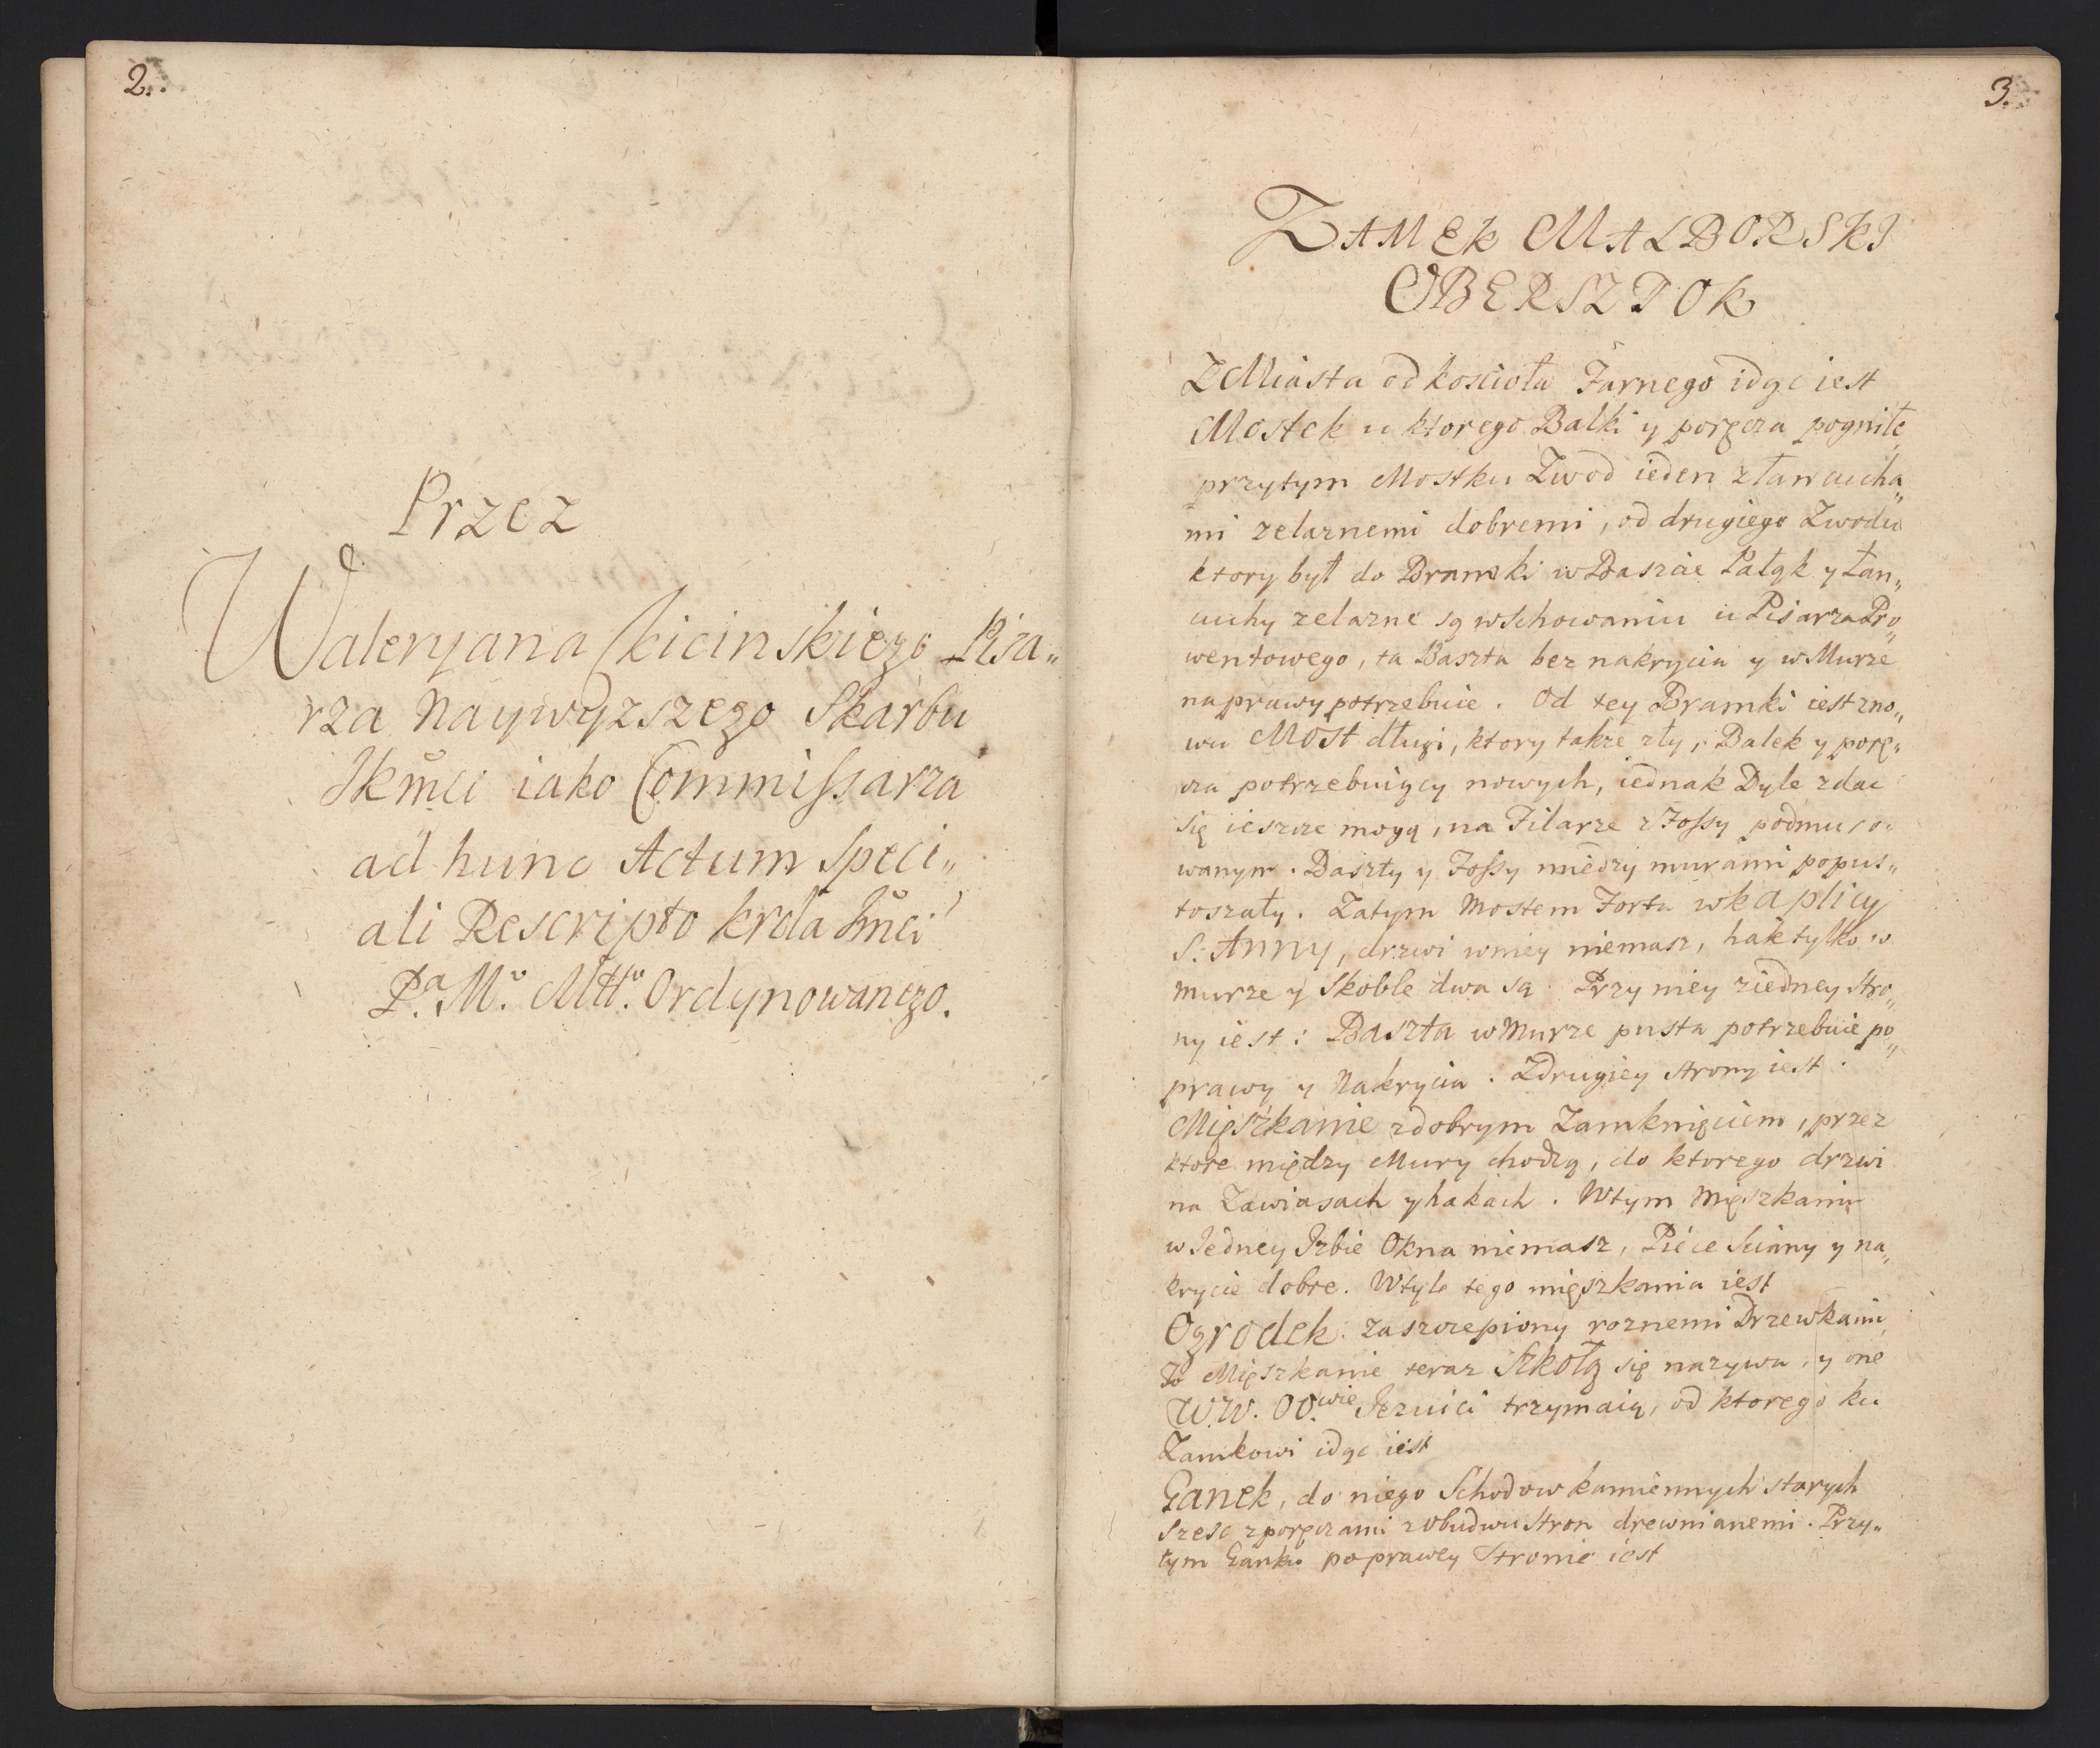 2.
Przez
Waleryana Kicinskiego Pisa„
rza Naywyzszego Skarbu
JKmći iako Commissarza
ad hunc Actum Speci„
ali Rescripto krola Jmći
P.ª M.º Mtt.º Ordynowanego.
3.
ZAMEK MALBORSKI
OBERSZTOK
Z Miasta od kościoła Farnego idąc iest
Mostek u ktorego Balki y poręcza pogniłe
przytym Mostku Zwod ieden z łancucha„
mi zelaznemi dobremi, od drugiego Zwodu
ktory był do Bramki w Baszcie Pałąk y łan„
cuchy zelazne są w Schowaniu u Pisarza Pro„
wentowego, ta Baszta bez nakrycia y w Murze
naprawy potrzebuie. Od tey Bramki iest zno„
wu Most długi, ktory takze zły, Balek y porę„
cza potrzebuiący nowych, iednak Dyle zdac
się ieszcze mogą, na Filarze z Fossy podmuro„
wanym. Baszty y Fossy między murami popus„
toszały. Zatym Mostem Forta w kaplicy
S: Anny, drzwi w niey niemasz, hak tylko w
murze y Skoble dwa są. Przy niey z iedney stro„
ny iest: Baszta w Murze pusta potrzebuie po„
prawy y Nakrycia. Z drugiey strony iest.
Mięszkanie z dobrym Zamknięciem, przez
ktore między Mury chodzą, do ktorego drzwi
na Zawiasach y hakach. W tym Mięszkaniu
w Jedney Jzbie Okna niemasz, Piece Sciany y na„
krycie dobre. W tyle tego mięszkania iest
Ogrodek. zaszczepiony roznemi Drzewkami
To Mięszkanie teraz Szkołą się nazywa, y one
W.W. OO.wie Jezuici trzymaią, od ktorego ku
Zamkowi idąc iest
Ganek, do niego Schodow kamiennych starych
szesc z poręczami z obudwu stron drewnianemi. Przy„
tym Ganku po prawey Stronie iest